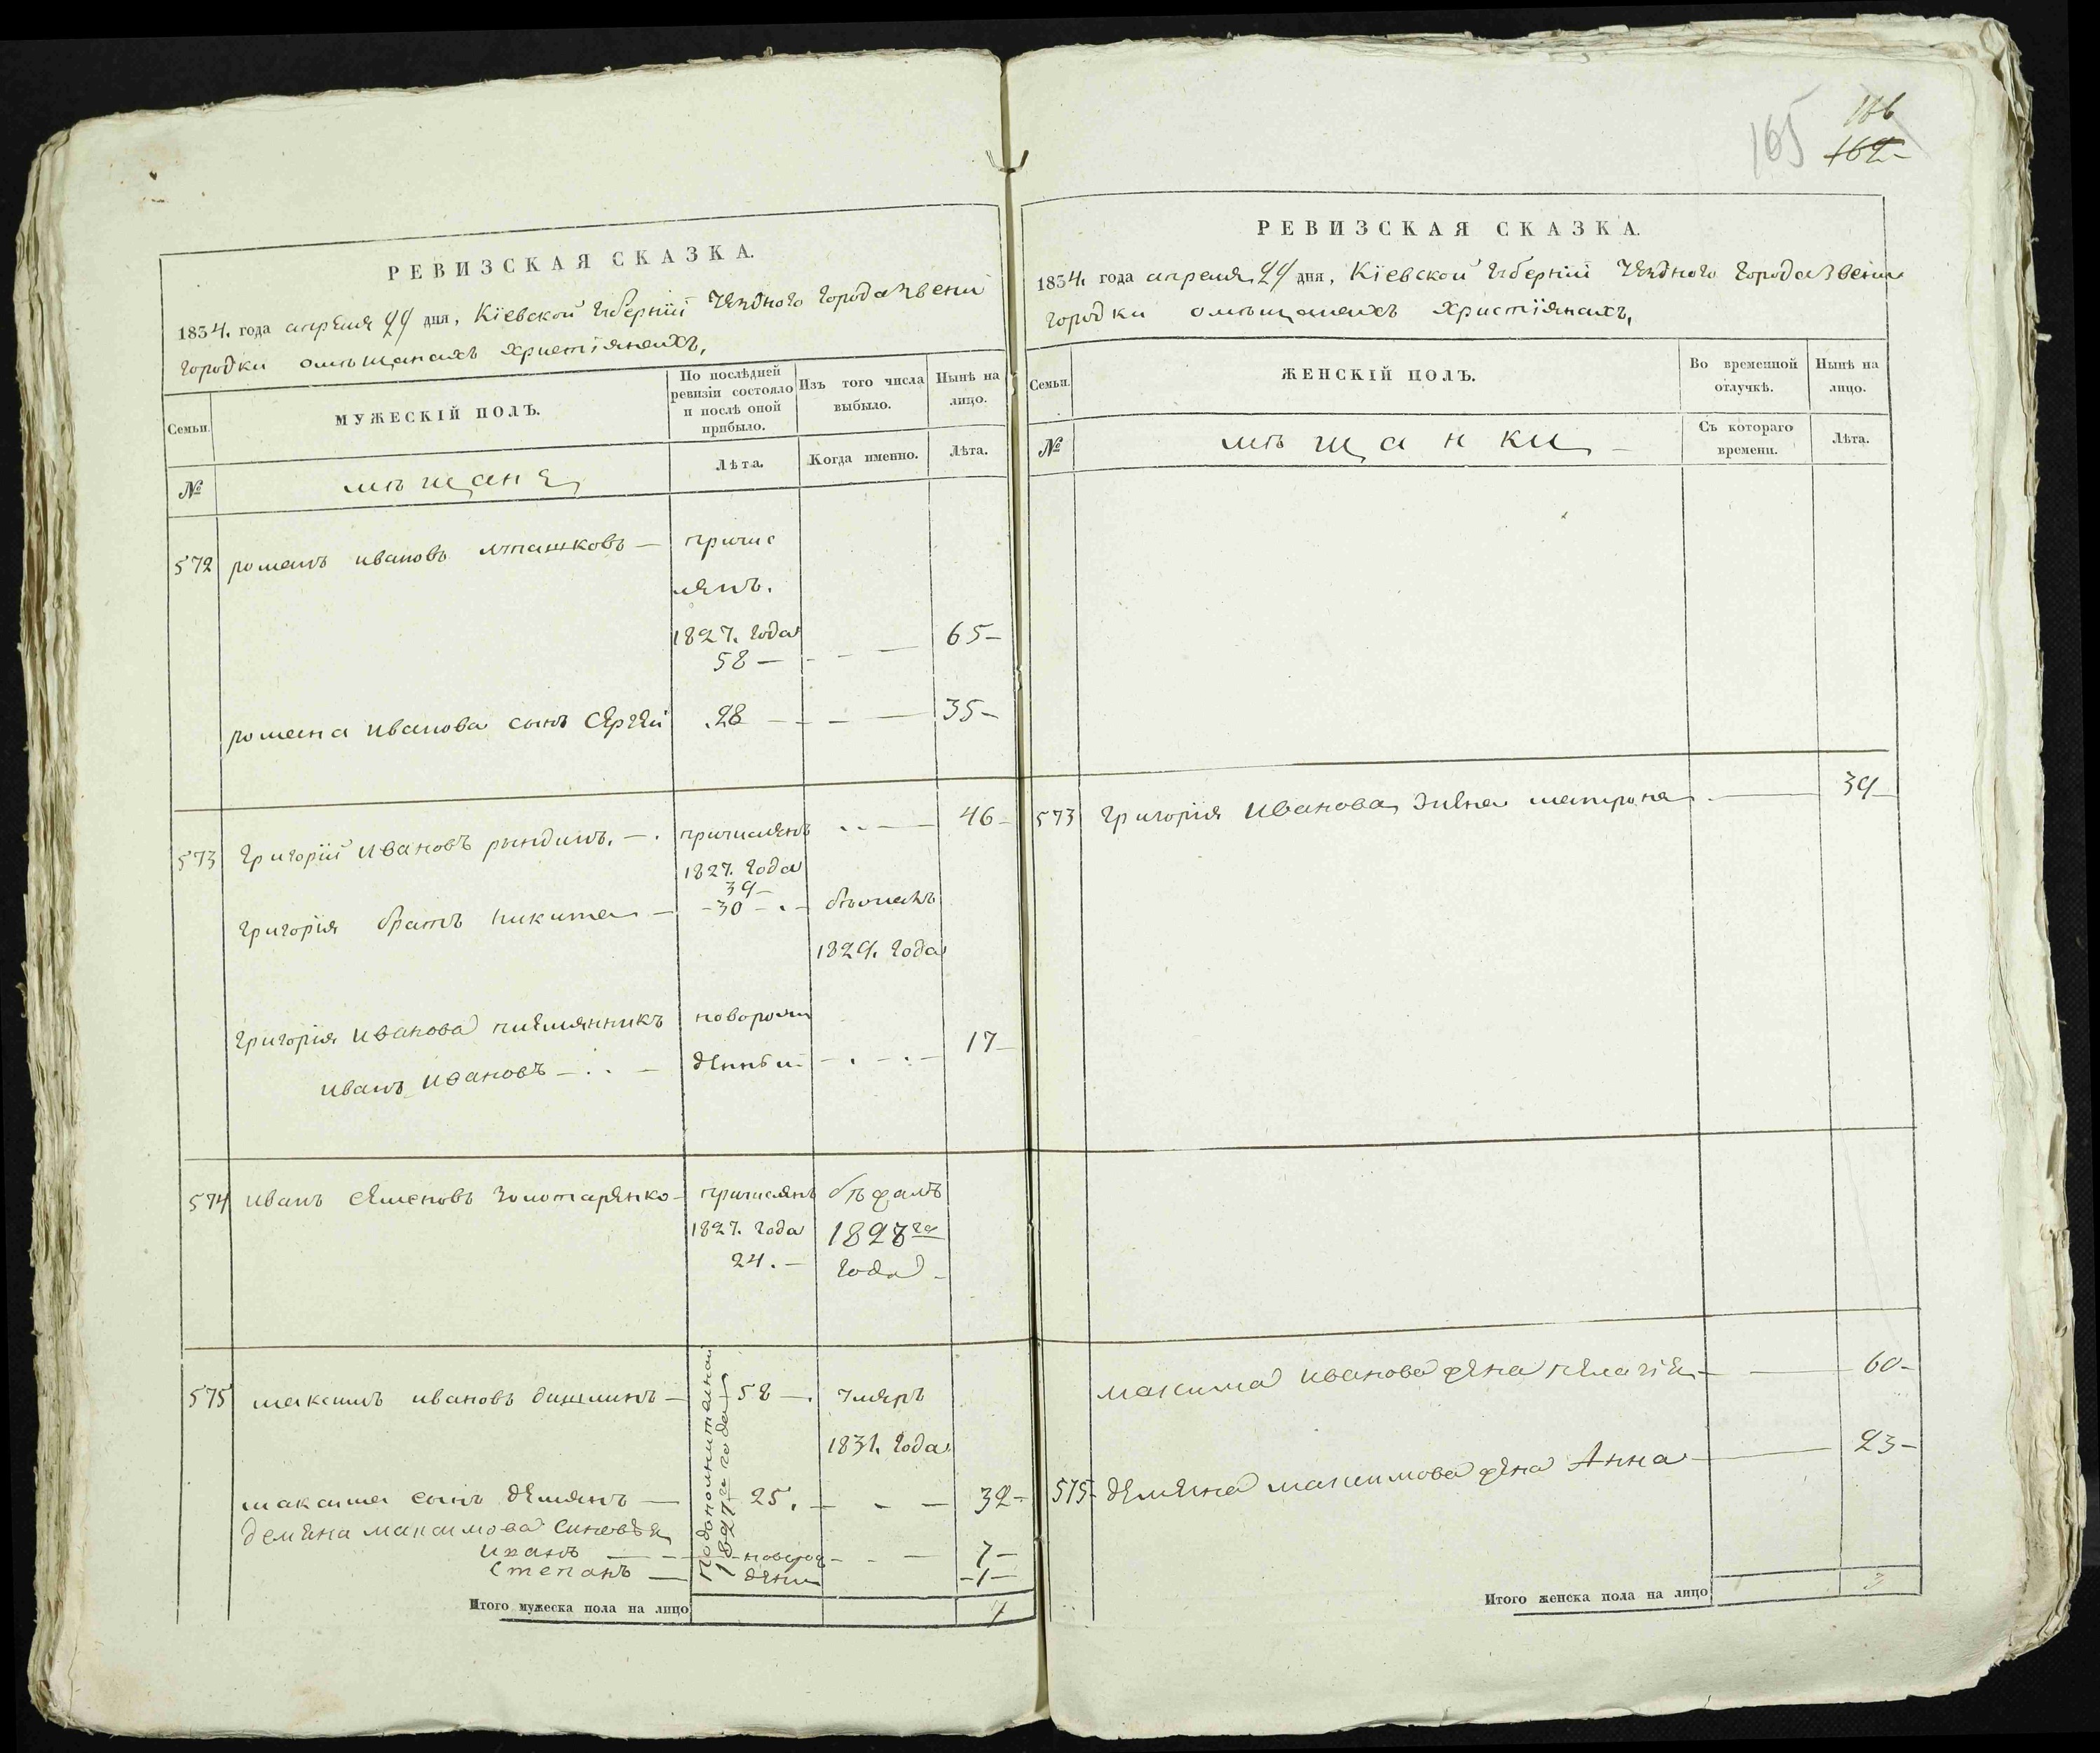 РЕВИЗСКАЯ СКАЗКА.
1834. года апреля 24 дня, Кіевской губерніи Уезднаго города Звени
городки о мѣщанахъ христіянахъ,
Семьи.
МУЖЕСКІЙ ПОЛЪ.
По послѣдней ревизіи состояло и послѣ оной прибыло.
Изъ того числа выбыло.
Нынѣ на лицо.
№
мѣщане
Лѣта.
Когда именно.
Лѣта.
572 романъ ивановъ причис
ленъ.
1827. года
58 — 65 —
романа иванова сынъ Сергей 28 — 35 —
573 григорій Ивановъ рындинъ. — причисленъ 46 —
1827. года
39 —
григорія братъ никита — 30 — бѣжалъ
1829. года
григорія Иванова племянникъ новорож
иванъ Ивановъ — денный — 17 —
574 иванъ семеновъ золотаренко — причисленъ бѣжалъ
1827. года 1828го
24. — года —
575 максимъ ивановъ — 58 — умеръ
1831. года
по дополнительной
1827го года
максима сынъ демянъ — 25. — 32 —
демяна максимова синовья
Иванъ — новорож — 7 —
Степанъ — дени — 1 —
Итого мужеска пола на лицо 7
165
166
162
РЕВИЗСКАЯ СКАЗКА.
1834. года апреля 24 дня, Кіевской губерніи Уезднаго города Звени
городки о мѣщанахъ христіянахъ,
Семьи.
ЖЕНСКІЙ ПОЛЪ.
Во временной отлучкѣ.
Нынѣ на лицо.
№
мѣщанки —
Съ котораго времени.
Лѣта.
573 григорія Иванова жена матрона — 39 —
максима Иванова жена пелагія — 60 —
575 — демяна максимова жена Анна — 23 —
Итого женска пола на лицо 3